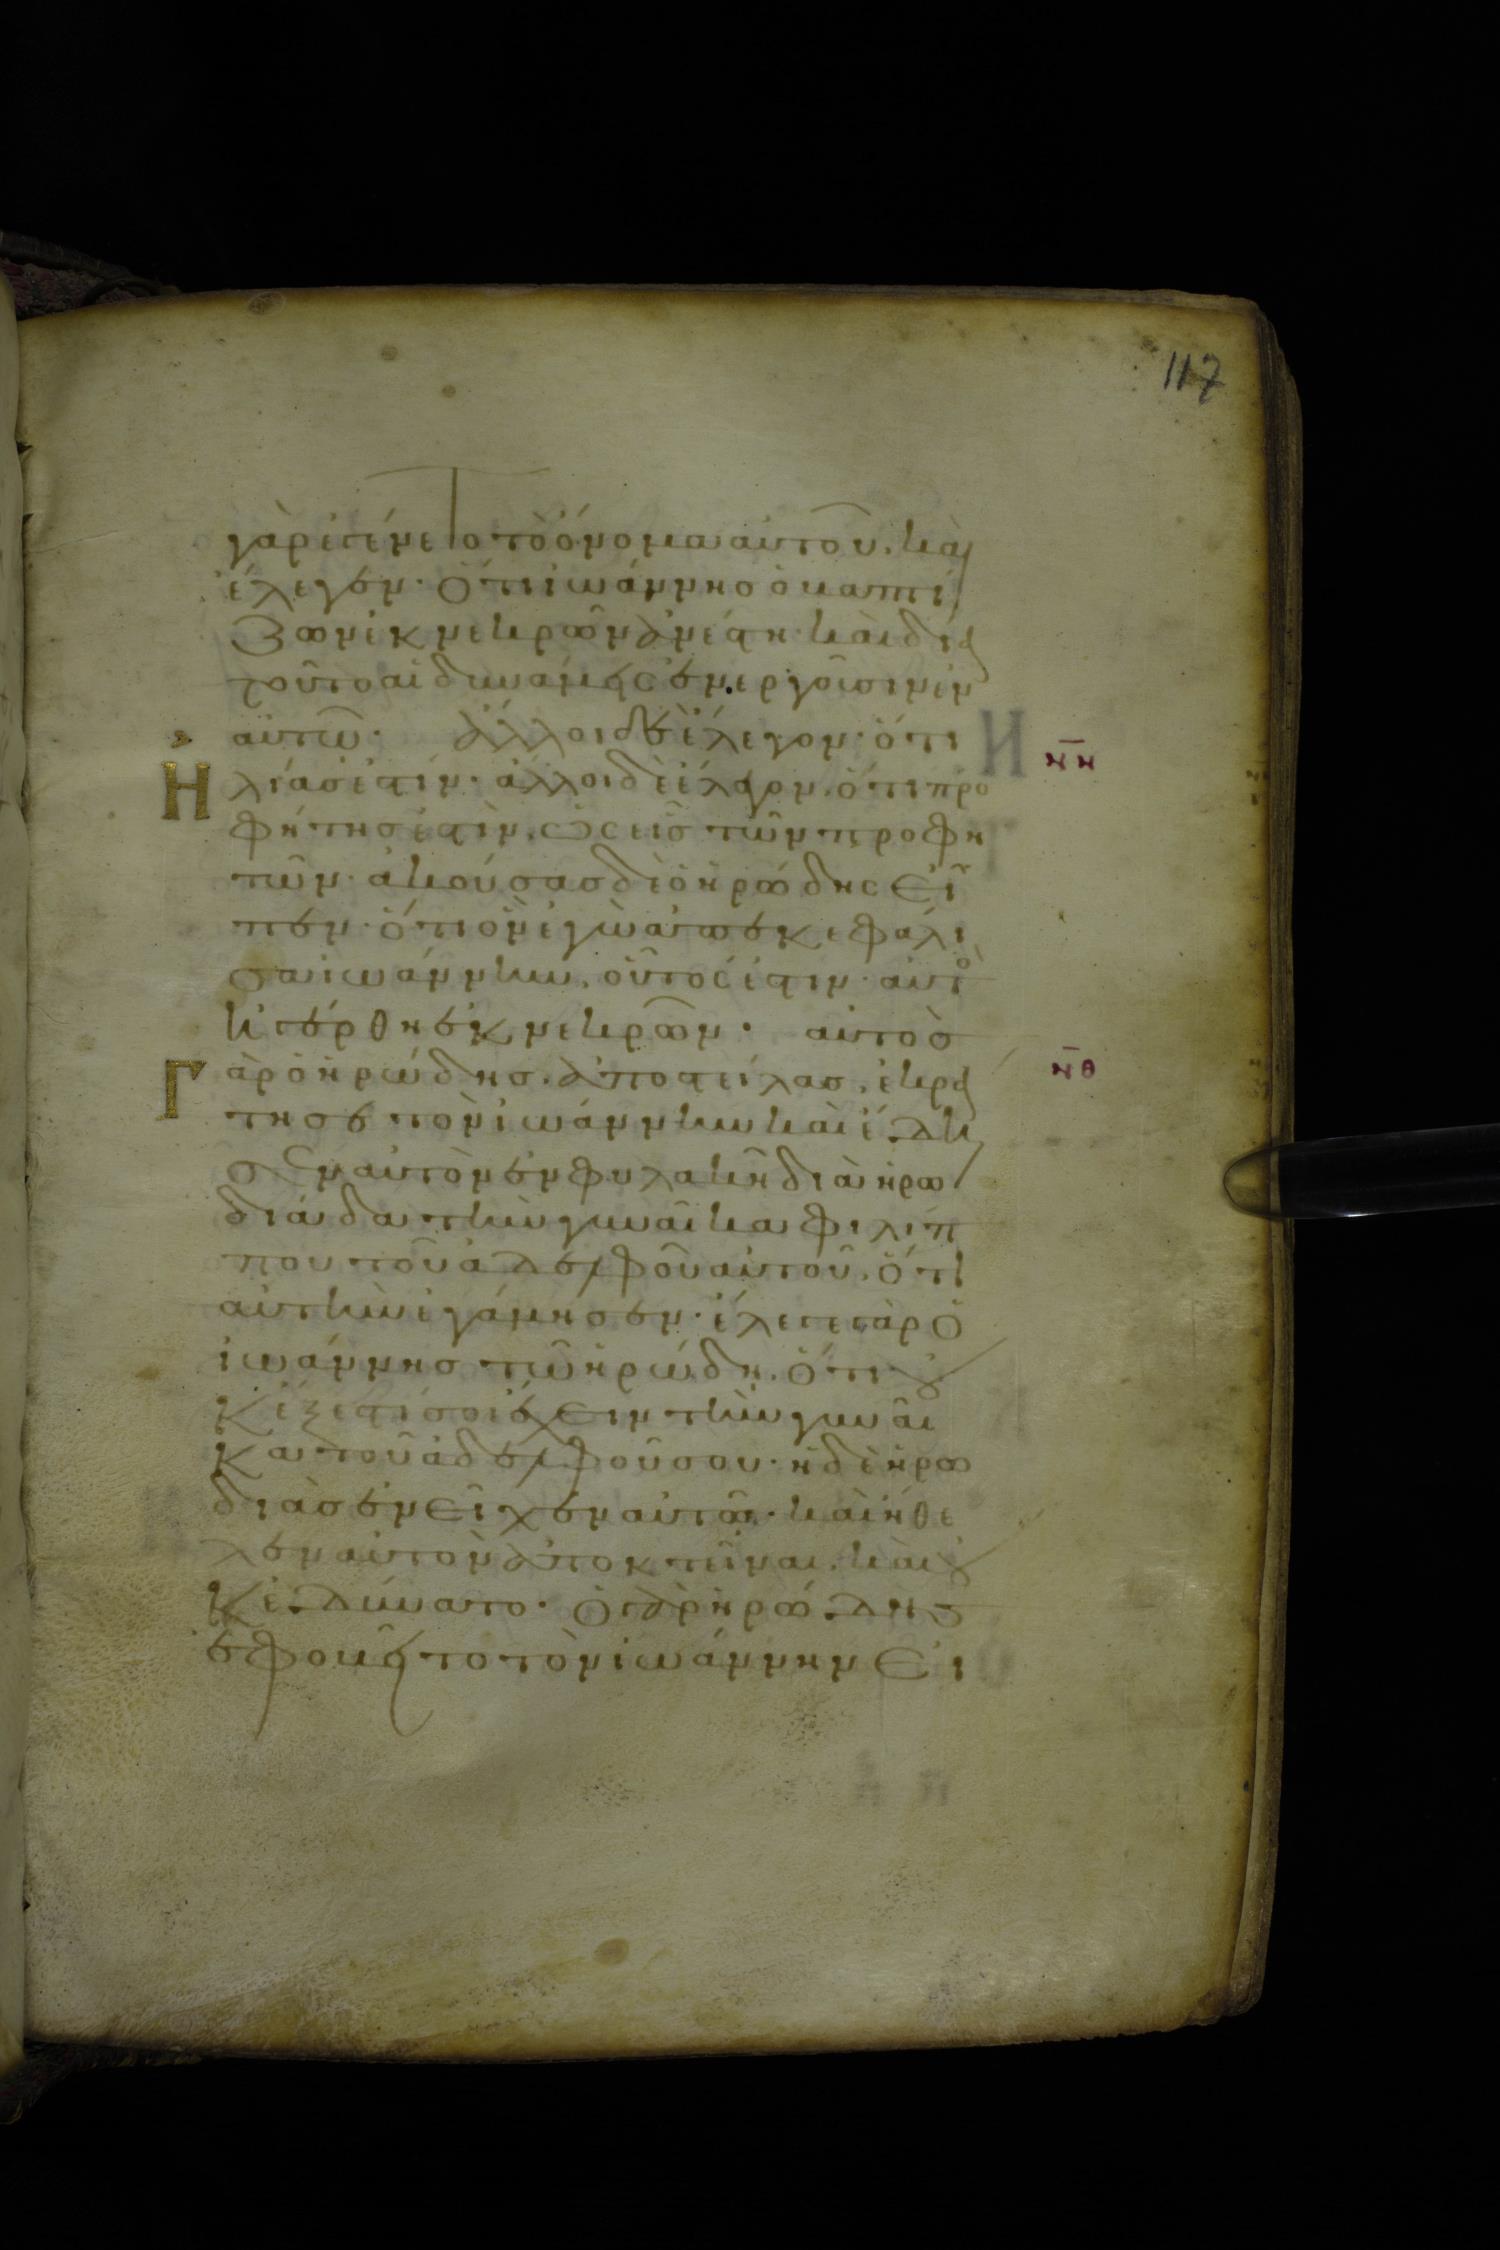 117
γὰρ ἐγένετο τὸ ὄνομα αὐτοῦ. καὶ
ἔλεγεν· ὅτι ἰωάννης ὁ βαπτί
ζων ἐκ νεκρῶν ἀνέστη· καὶ διὰ
τοῦτο αἱ δυνάμεις ἐνεργοῦσιν ἐν
αὐτῶ· ἄλλοι δὲ ἔλεγον· ὅτι
νη
Ηλίας ἐστίν· ἄλλοι δὲ ἔλεγον. ὅτι προ
φήτης ἐστὶν. ὡς εἷς τῶν προφη
τῶν· ἀκούσας δὲ ὁ ἡρώδης εἶ
πεν· ὅτι ὃν ἐγὼ ἀπεκεφάλι
σα ἰωάννην, οὗτος ἐστιν· αὐτὸ
ἠγέρθη ἐκ νεκρῶν· αὐτὸς
Γὰρ ὁ ἡρώδης. ἀποστείλας, ἐκρά
νθ
τησε τὸν ἰωάννην καὶ ἔδη
σεν αὐτὸν ἐν φυλακῆ διὰ ἡρω
διάδα τὴν γυναῖκα φιλίπ
που τοῦ ἀδελφοῦ αὐτοῦ. ὅτι
αὐτὴν ἐγάμησεν· ἔλεγε γὰρ ὁ
ἰωάννης τῶ ἡρώδη. ὅτι οὐ
κ ἔξεστί σοι ἔχειν τὴν γυναῖ
κα τοῦ ἀδελφοῦ σου· ἡ δὲ ἡρω
διὰς ἐνεῖχεν αὐτῶ· καὶ ἤθε
λεν αὐτὸν ἀποκτεῖναι. καὶ οὐ
κ ἐδύνατο· ὁ γὰρ ἡρώδης
ἐφοβεῖτο τὸν ἰωάννην εἰ